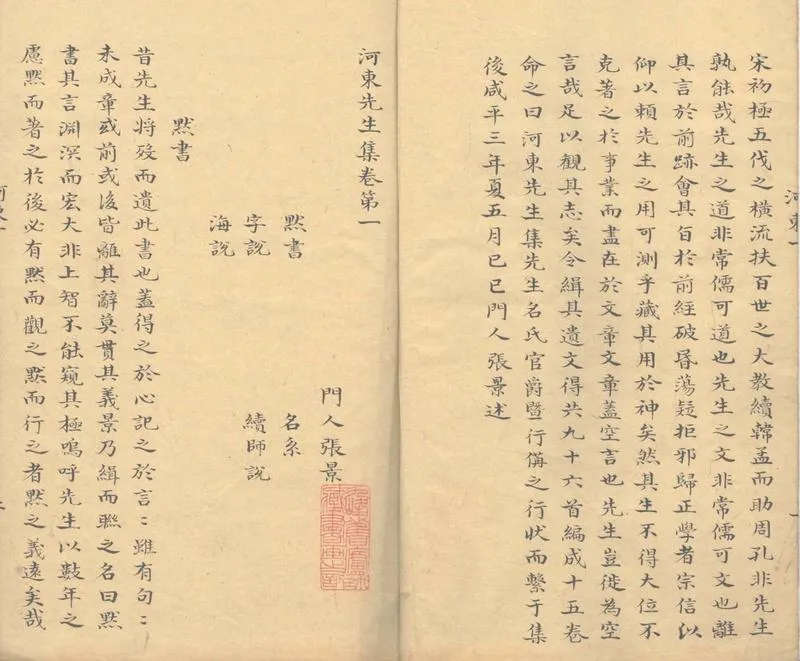 宋初極五代之橫流扶百世之大教續韓孟而助周孔非先生
孰能哉先生之道非常儒可道也先生之文非常儒可文也離
其言於前跡會其旨於前經破昬蕩疑拒邪歸正學者宗信以
仰以賴先生之用可測乎藏其用於神矣然其生不得大位不
克著之於事業而盡在於文章文章蓋空言也先生豈徒為空
言哉足以觀其志矣今緝其遺文得共九十六首編成十五卷
命之曰河東先生集先生名氏官爵暨行僃之行狀而繫于集
後咸平三年夏五月己巳門人張景述
河東先生集卷第一
門人張景
默書 名系
字說 續師說
海說
默書
昔先生將歿而遺此書也蓋得之於心記之於言:雖有句:
未成章或前或後皆離其辭莫貫其義景乃緝而聮之名曰默
書其言淵溟而宏大非上智不能窺其極嗚呼先生以數年之
慮默而著之於後必有默而觀之默而行之者默之義遠矣哉